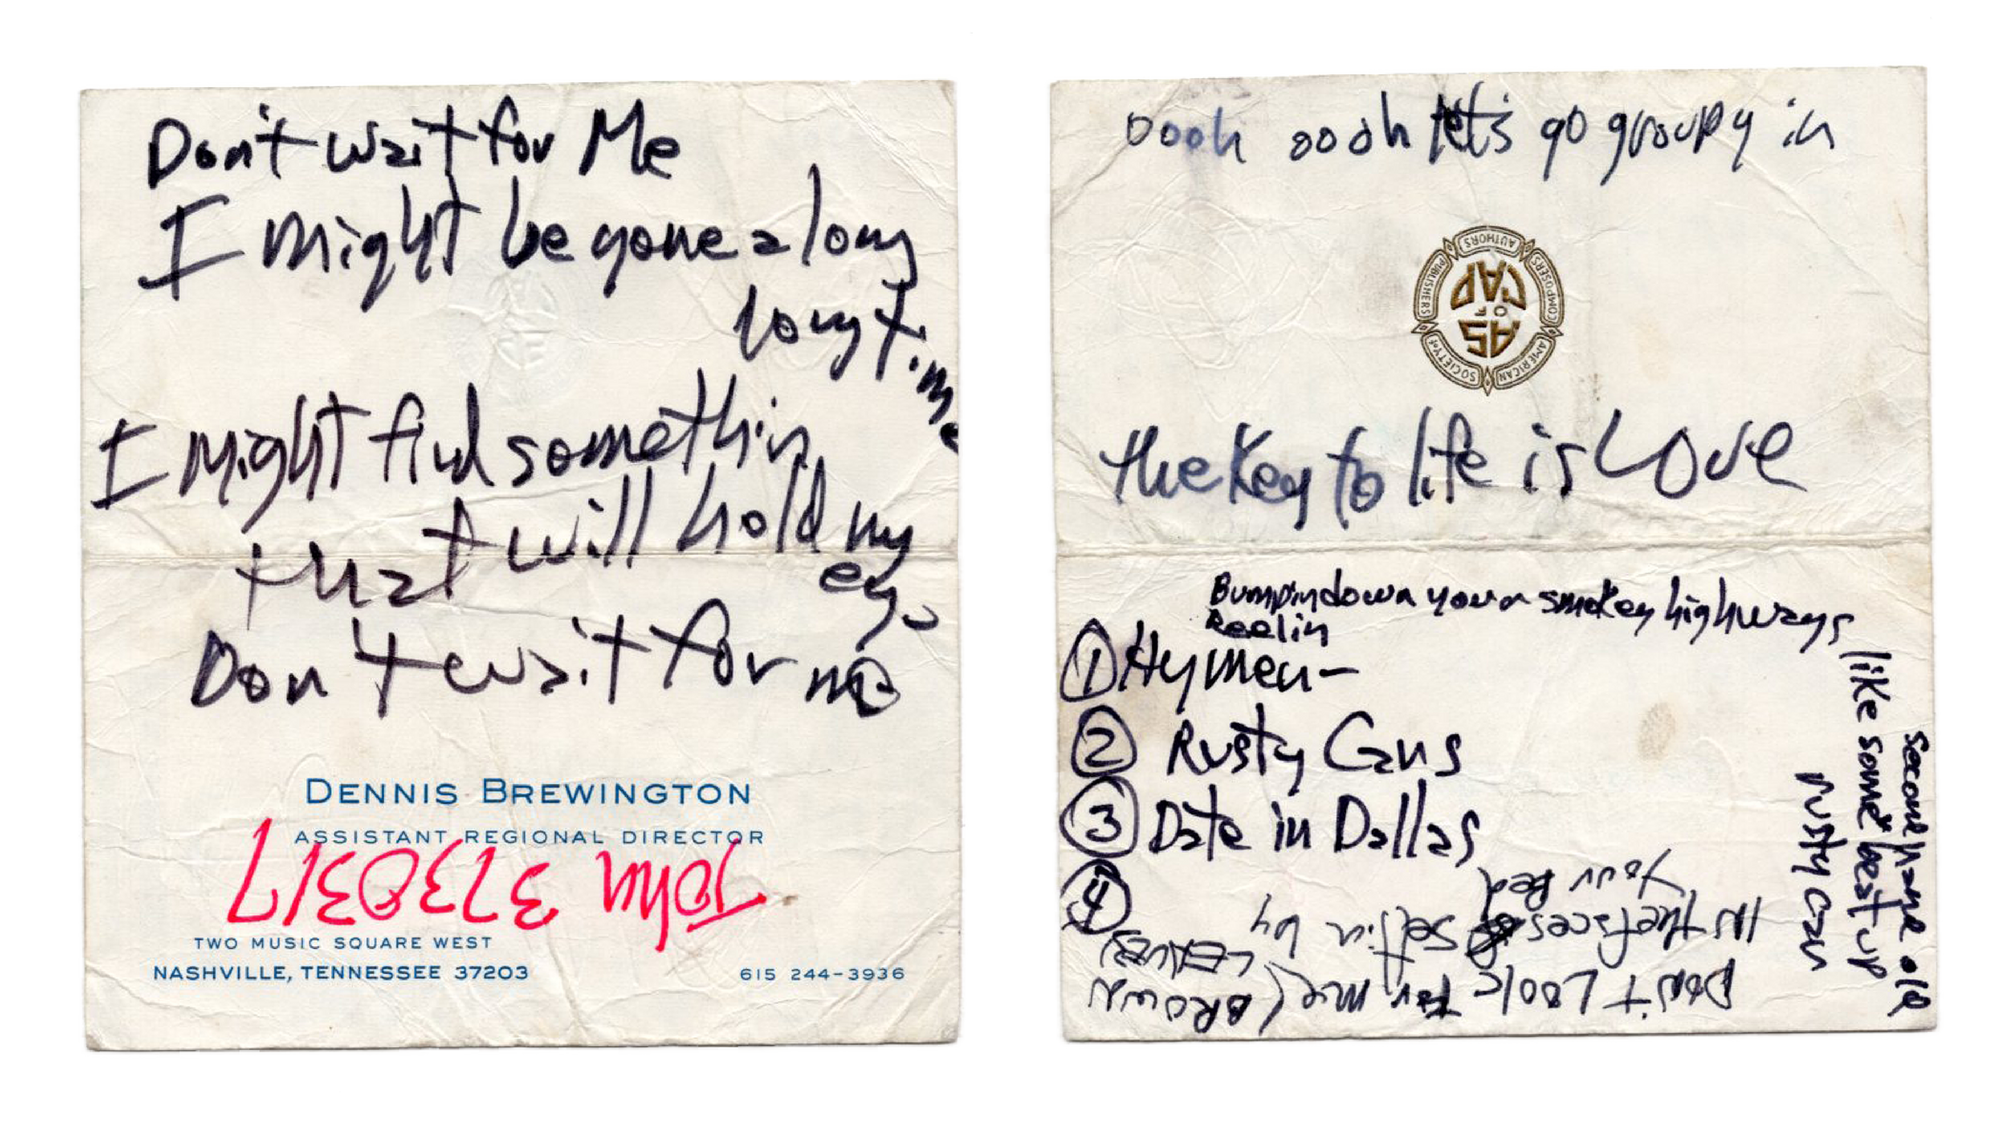 Don't wait for Me
I might be gone a long
long time
I might find somethin
that will hold my
eye
Don't wait for me
DENNIS BREWINGTON
ASSISTANT REGIONAL DIRECTOR
John 3730317
TWO MUSIC SQUARE WEST
NASHVILLE, TENNESSEE 37203
615 244-3936
oooh oooh let's go groupy in
AMERICAN SOCIETY OF COMPOSERS AUTHORS PUBLISHERS
AS
OF
CAP
the Key to life is Love
Bumpin down your smokey highways
Reelin
like some beat up
second hand old
rusty can
① Hymen-
② Rusty Cans
③ Date in Dallas
④
Don't Look for me (BROWN
LEAVES
in the faces settin by
your Bed